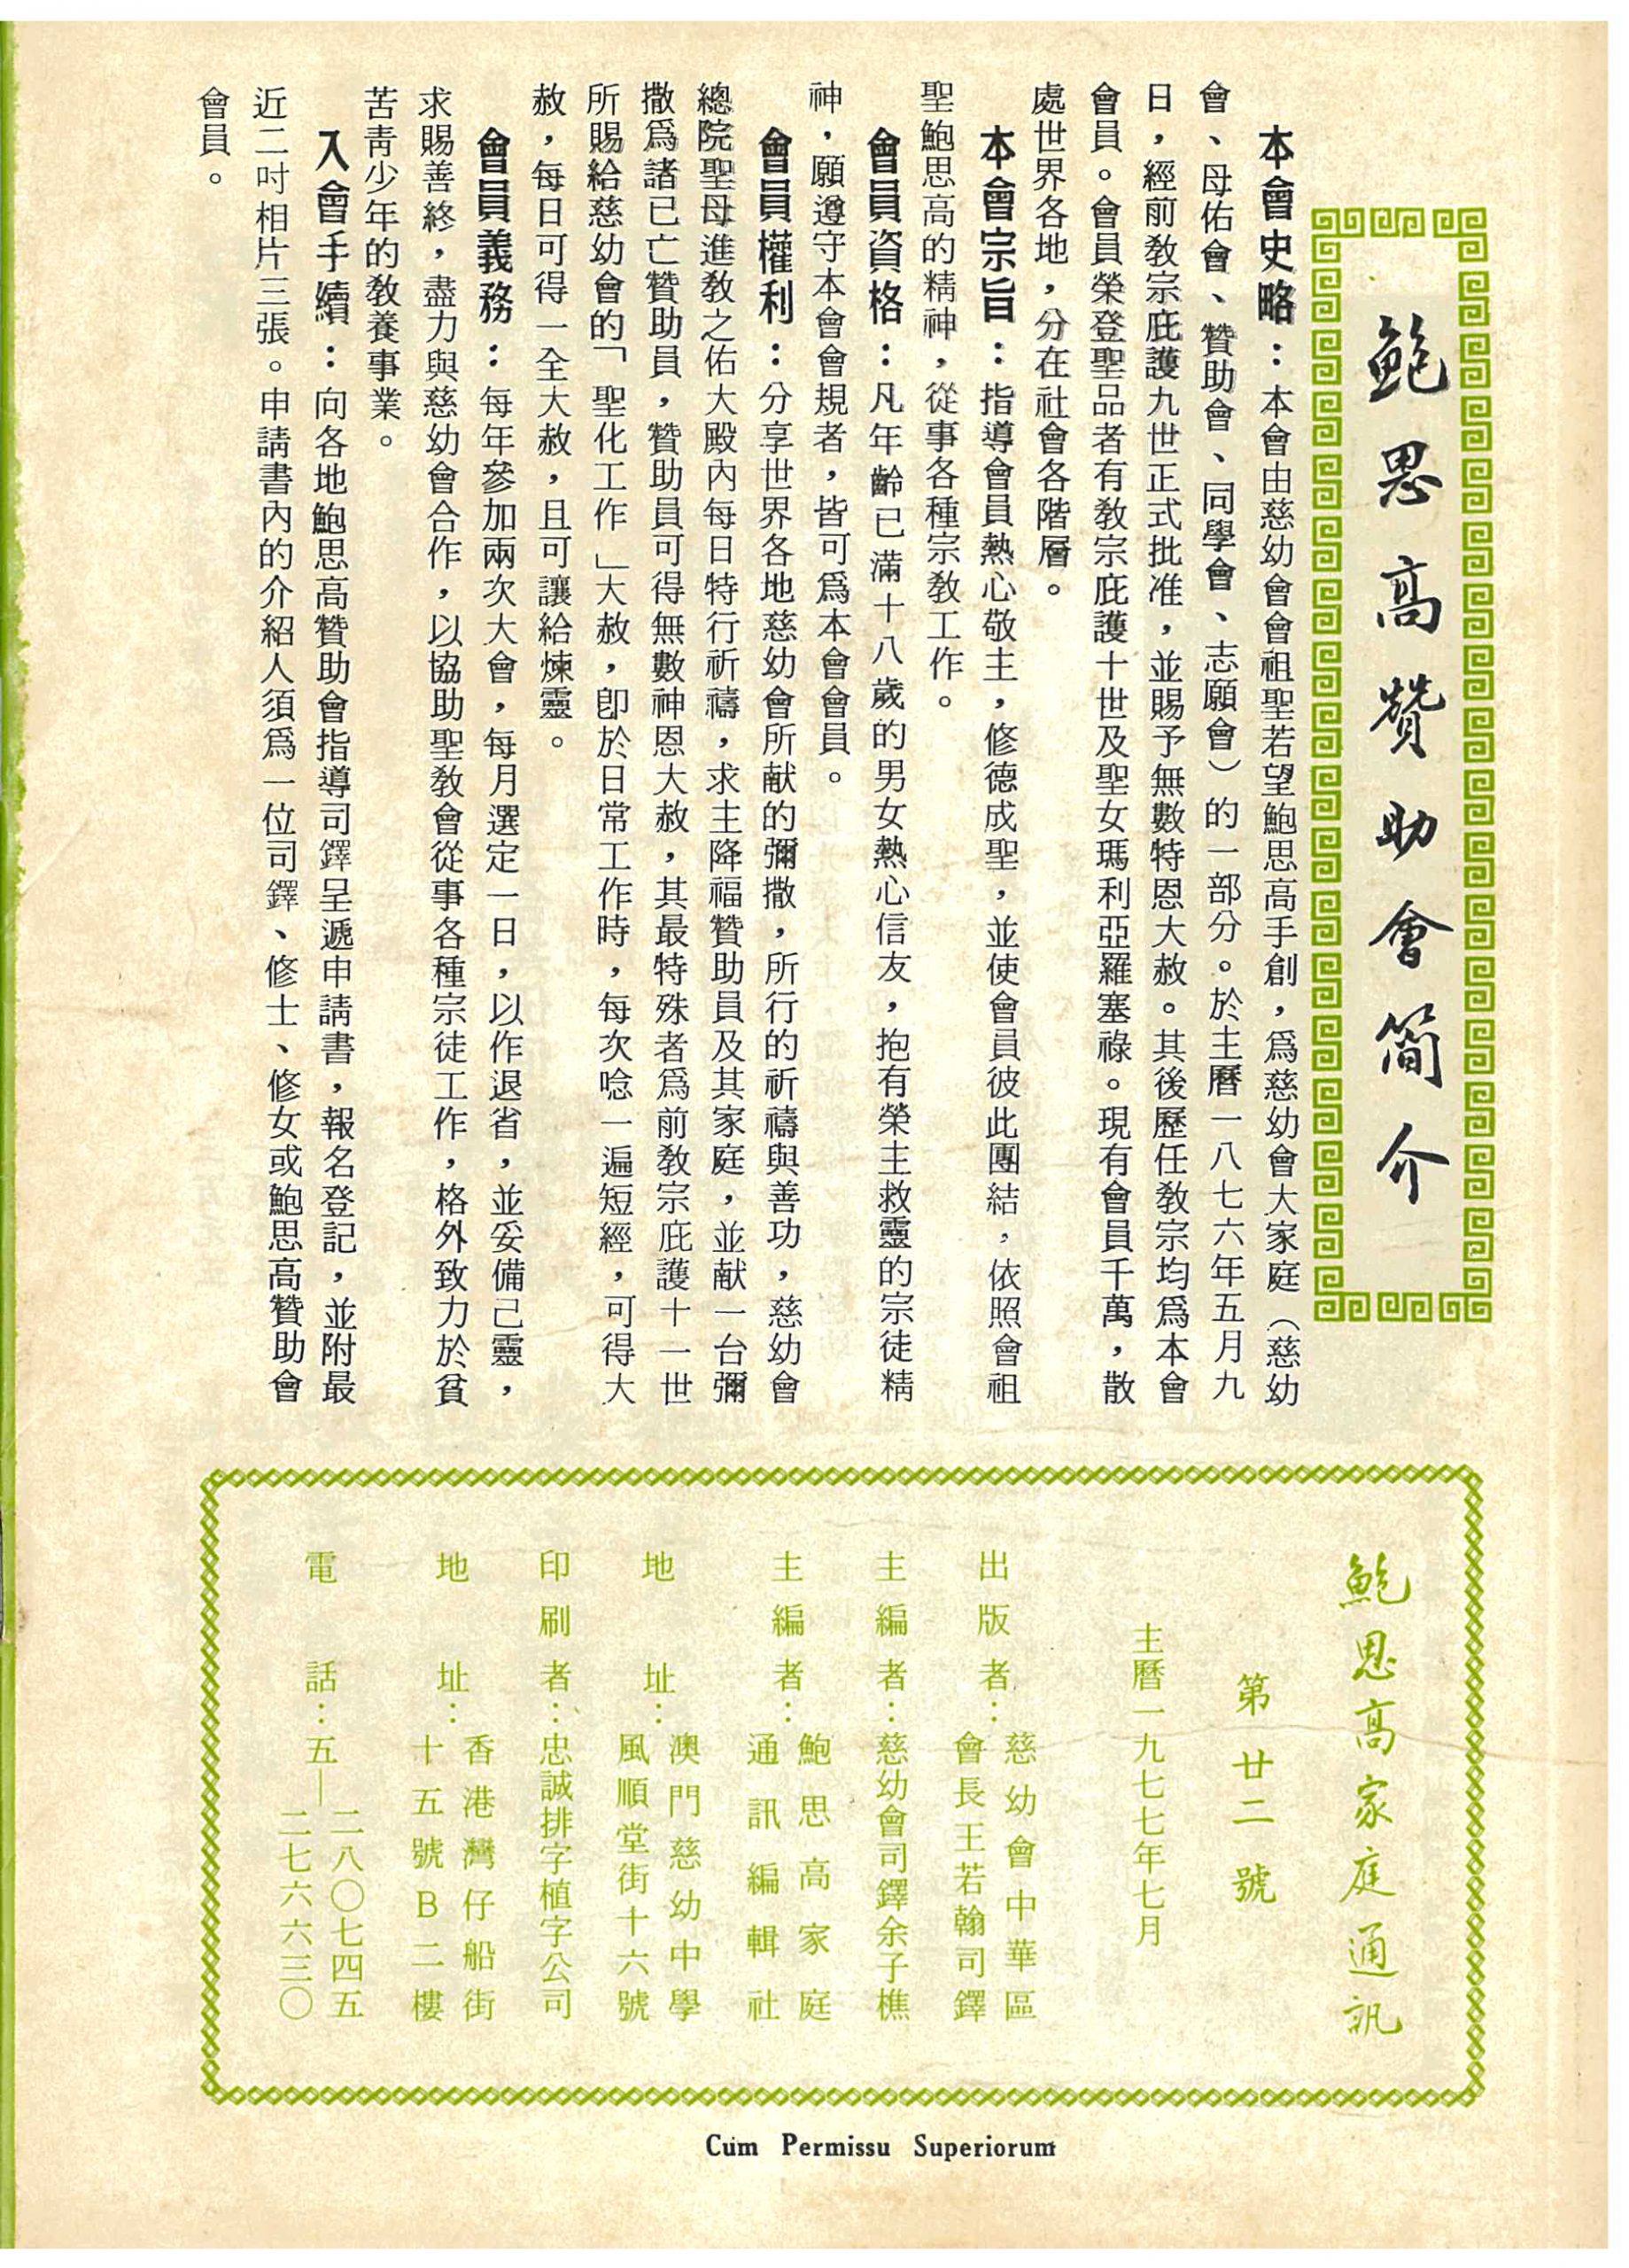 鮑思高贊助會簡介
本會史略：本會由慈幼會會祖聖若望鮑思高手創，爲慈幼會大家庭（慈幼
會、母佑會、贊助會、同學會、志願會）的一部分。於主曆一八七六年五月九
日，經前敎宗庇護九世正式批准，並賜予無數特恩大赦。其後歷任敎宗均爲本會
會員。會員榮登聖品者有敎宗庇護十世及聖女瑪利亞羅塞祿。現有會員千萬，散
處世界各地，分在社會各階層。
本會宗旨：指導會員熱心敬主，修德成聖，並使會員彼此團結，依照會祖
聖鮑思高的精神，從事各種宗敎工作。
會員資格：凡年齡已滿十八歲的男女熱心信友，抱有榮主救靈的宗徒精
神，願遵守本會會規者，皆可爲本會會員。
會員權利：分享世界各地慈幼會所献的彌撒，所行的祈禱與善功，慈幼會
總院聖母進敎之佑大殿內每日特行祈禱，求主降福贊助員及其家庭，並献一台彌
撒爲諸已亡贊助員，贊助員可得無數神恩大赦，其最特殊者爲前敎宗庇護十一世
所賜給慈幼會的「聖化工作」大赦，卽於日常工作時，每次唸一遍短經，可得大
赦，每日可得一全大赦，且可讓給煉靈。
會員義務：每年參加兩次大會，每月選定一日，以作退省，並妥備己靈，
求賜善終，盡力與慈幼會合作，以協助聖敎會從事各種宗徒工作，格外致力於貧
苦靑少年的敎養事業。
入會手續：向各地鮑思高贊助會指導司鐸呈遞申請書，報名登記，並附最
近二吋相片三張。申請書內的介紹人須爲一位司鐸、修士、修女或鮑思高贊助會
會員。
鮑思高家庭通訊
第廿二號
主曆一九七七年七月
出版者：慈幼會中華區
會長王若翰司鐸
主編者：慈幼會司鐸余子樵
主編者：鮑思高家庭
通訊編輯社
地址：澳門慈幼中學
風順堂街十六號
印刷者：忠誠排字植字公司
地址：香港灣仔船街
十五號B二樓
電話：五—二八〇七四五
二七六六三〇
Cum Permissu Superiorum